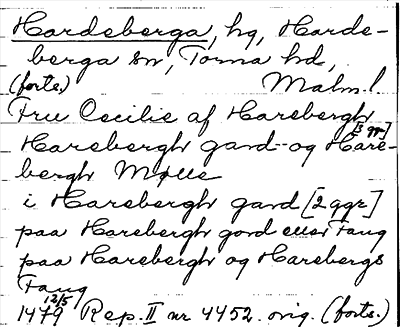 Hardeberga, hg, Harde-
berga sn, Torna hd,
(forts.) Malm.l.
Fru Cecilie af Harebergh
Harebergh gard -- og Hare- [3 gr]
bergh Mølle
i Harebergh gard [2 ggr]
paa Harebergh gord eller Fang
paa Harebergh og Harebergs
Fang
1479 12/5 Rep. II nr 4452. orig. (forts.)